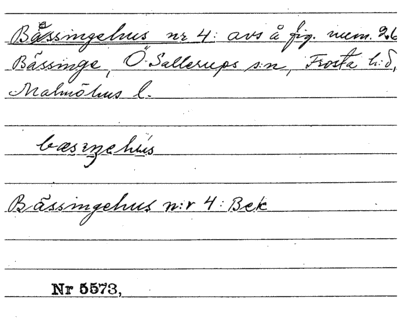 Bässingehus nr 4: avs å fig. num. 226
Bässinge, Ö. Sallerups s:n, Frosta h:d,
Malmöhus l.
Bässingehus n:r 4: Bek
Nr 5573,